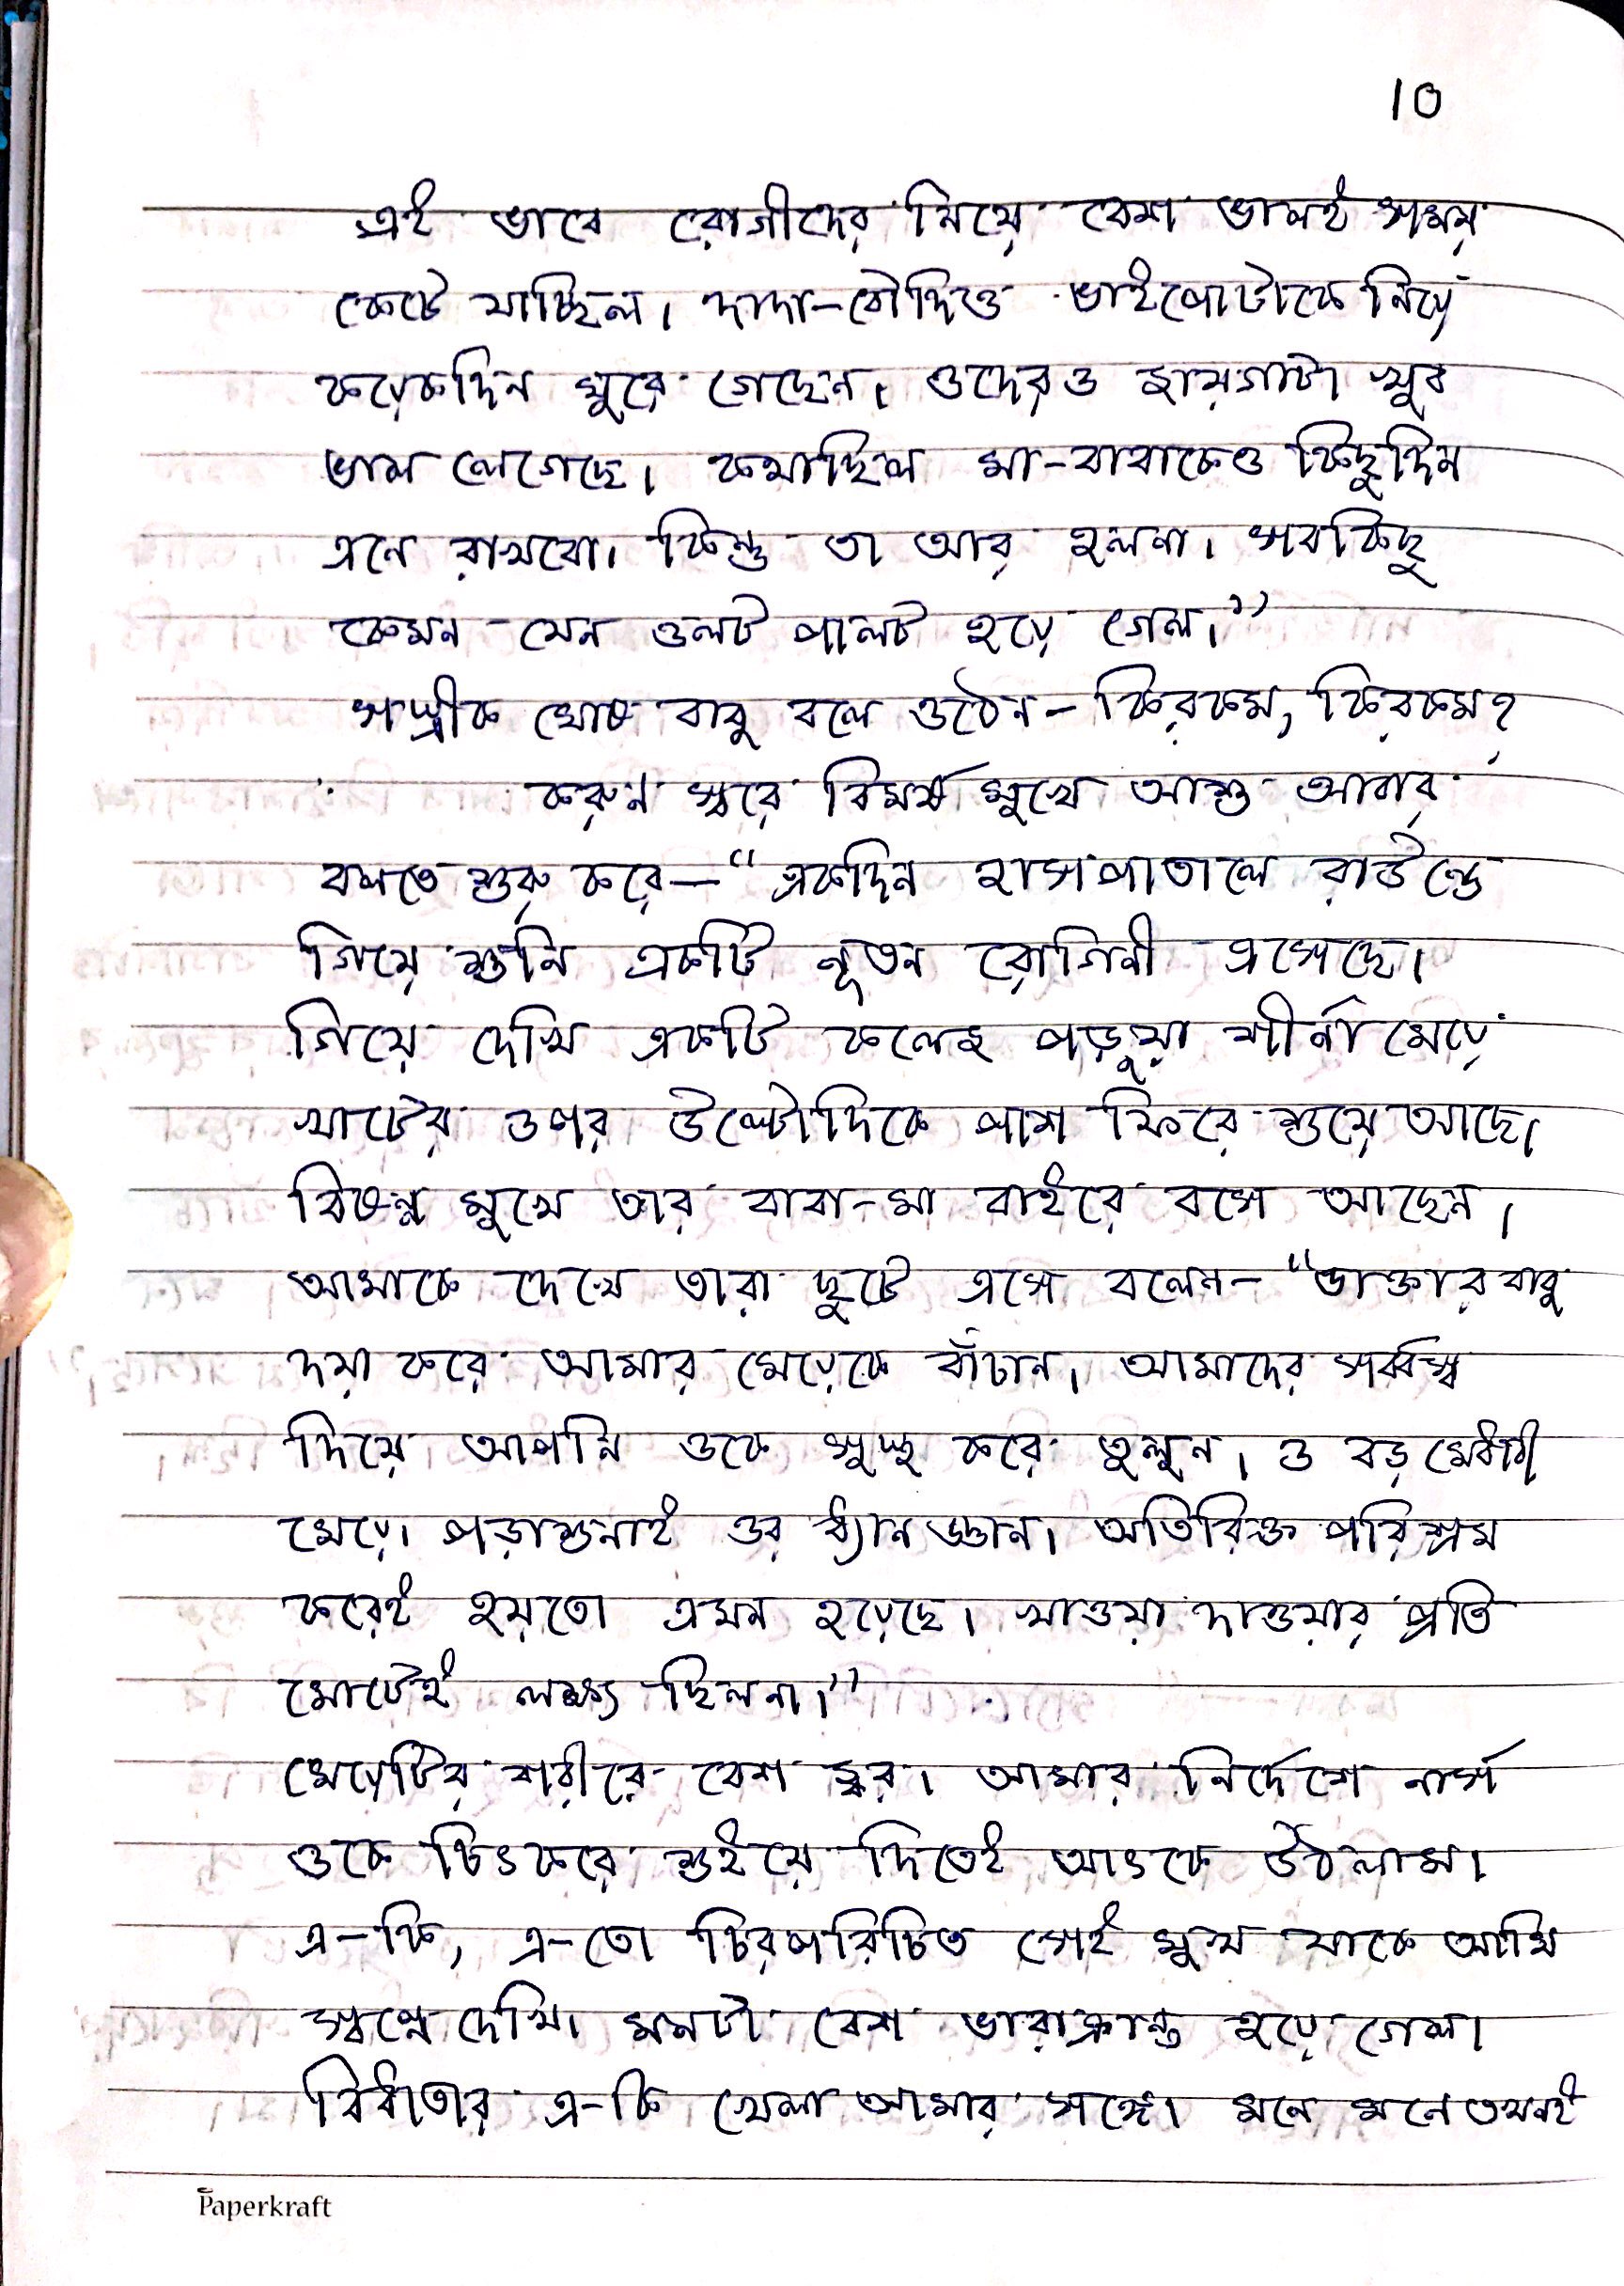 10
এই ভাবে রোগীদের নিয়ে বেশ ভালই সময়
কেটে যাচ্ছিল। দাদা-বৌদিও ভাইপোটাকে নিয়ে
কয়েকদিন ঘুরে গেছেন। ওদেরও জায়গাটা খুব
ভাল লেগেছে। কথাছিল মা-বাবাকেও কিছুদিন
এনে রাখবো। কিন্তু তা আর হলনা। সবকিছু
কেমন যেন ওলট পালট হয়ে গেল।”
সস্ত্রীক ঘোষ বাবু বলে ওঠেন- কিরকম, কিরকম?
করুন স্বরে বিমর্ষ মুখে আশু আবার
বলতে শুরু করে—“একদিন হাসপাতালে রাউন্ডে
গিয়ে শুনি একটি নূতন রোগিনী এসেছে।
গিয়ে দেখি একটি কলেজ পড়ুয়া শীর্না মেয়ে
খাটের ওপর উল্টোদিকে পাশ ফিরে শুয়ে আছে।
বিষন্ন মুখে তার বাবা-মা বাইরে বসে আছেন।
আমাকে দেখে তারা ছুটে এসে বলেন-“ডাক্তারবাবু
দয়া করে আমার মেয়েকে বাঁচান। আমাদের সর্বস্ব
দিয়ে আপনি ওকে সুস্থ করে তুলুন। ও বড় মেধাবী
মেয়ে। পড়াশুনাই ওর ধ্যানজ্ঞান। অতিরিক্ত পরিশ্রম
করেই হয়তো এমন হয়েছে। খাওয়া দাওয়ার প্রতি
মোটেই লক্ষ্য ছিলনা।”
মেয়েটির শরীরে বেশ জ্বর। আমার নির্দেশে নার্স
ওকে চিৎকরে শুইয়ে দিতেই আৎকে উঠলাম।
এ-কি, এ-তো চিরপরিচিত সেই মুখ যাকে আমি
স্বপ্নে দেখি। মনটা বেশ ভারাক্রান্ত হয়ে গেল।
বিধাতার এ-কি খেলা আমার সঙ্গে। মনে মনে তখনই
Paperkraft